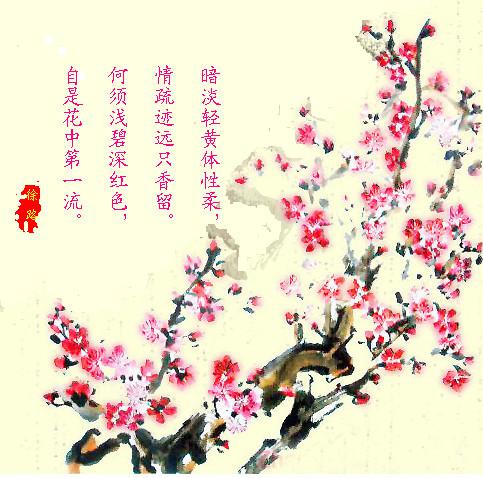 暗淡轻黄体性柔，
情疏迹远只香留。
何须浅碧深红色，
自是花中第一流。